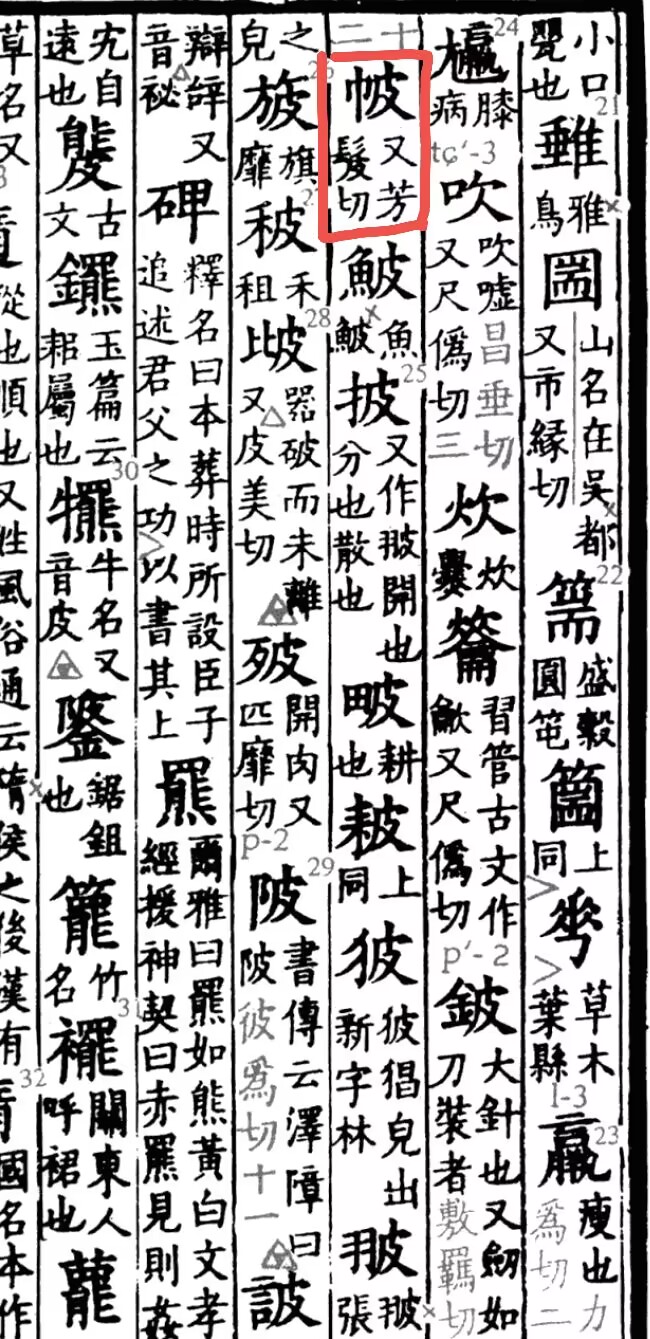 小口甖也 雅鳥 圌山名在吳都又市緣切 篅盛穀圓笔 上同 草木葉縣 羸瘦也力為切二
膝病 吹吹噓昌垂切三又尺偽切 炊炊爨 習管古文作龡又尺偽切 鈹大針也又劒如刀裝者敷羈切
十二 帔又芳髲切 鮍魚鮍 披又作翍開也分也散也 耕也 耚上同 狓彼猖皃出新字林 翍翍張
之皃 旇旗靡 秛禾租 器破而未離又皮美切 㱟開肉又匹靡切 陂書傳云澤障曰陂彼為切十一 詖
辯辝又音祕 碑釋名曰本葬時所設臣子追述君父之功以書其上 羆爾雅曰羆如熊黃白文孝經援神契曰赤羆見則姦
宄自遠也 古文 䥯玉篇云耜屬也 犤牛名又音皮 鋸鉏也 竹名 襬關東人呼裙也
草名又 從也順也又姓風俗通云隋侯之後漢有 國名本作